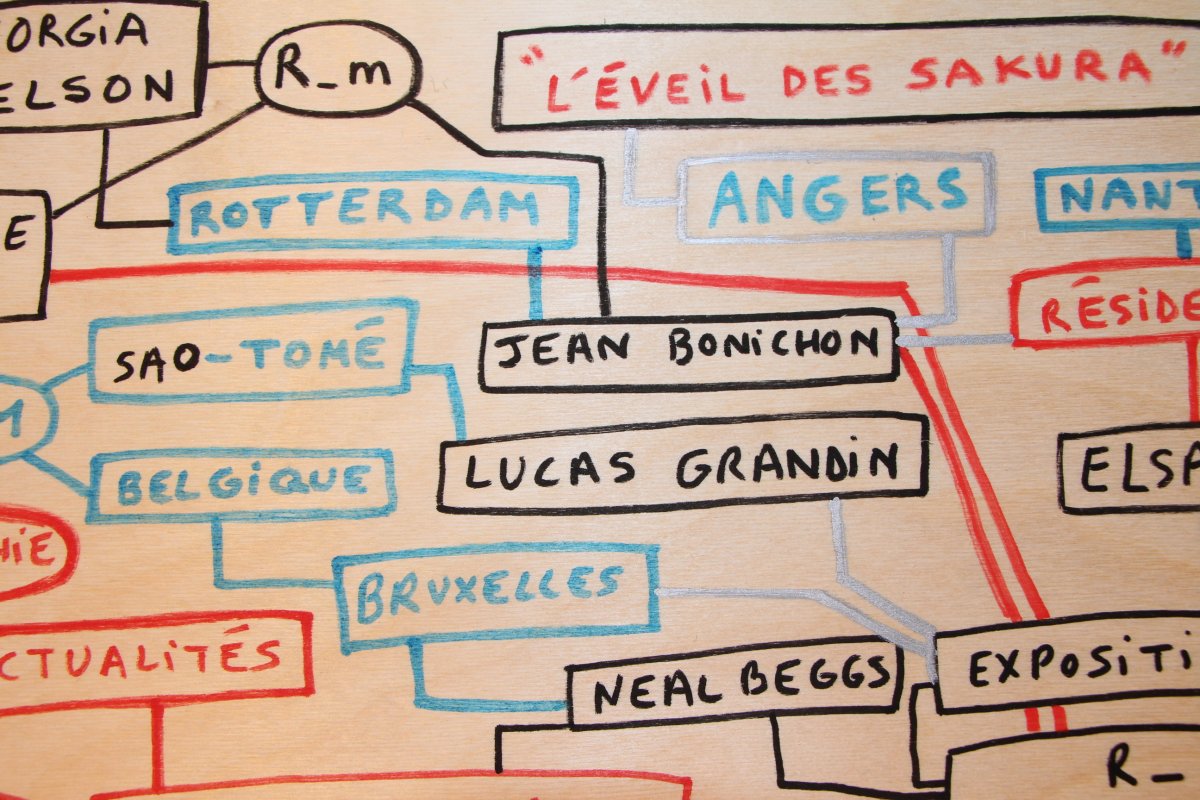 ORGiA
ELSON
R_m
"L'ÉVEiL DES SAKURA"
E
ROTTERDAM
ANGERS
NANT
RÉSIDE
SAO-TOMÉ
JEAN BONiCHON
M
BELGiQUE
LUCAS GRANDiN
ELSA
HiE
BRUXELLES
CTUALiTÉS
NEAL BEGGS
EXPOSiTi
R_